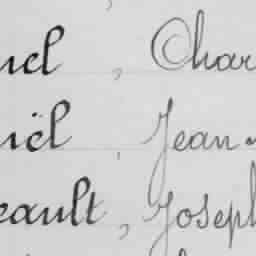 uel, Char
uël, Jean-
eault, Joseph